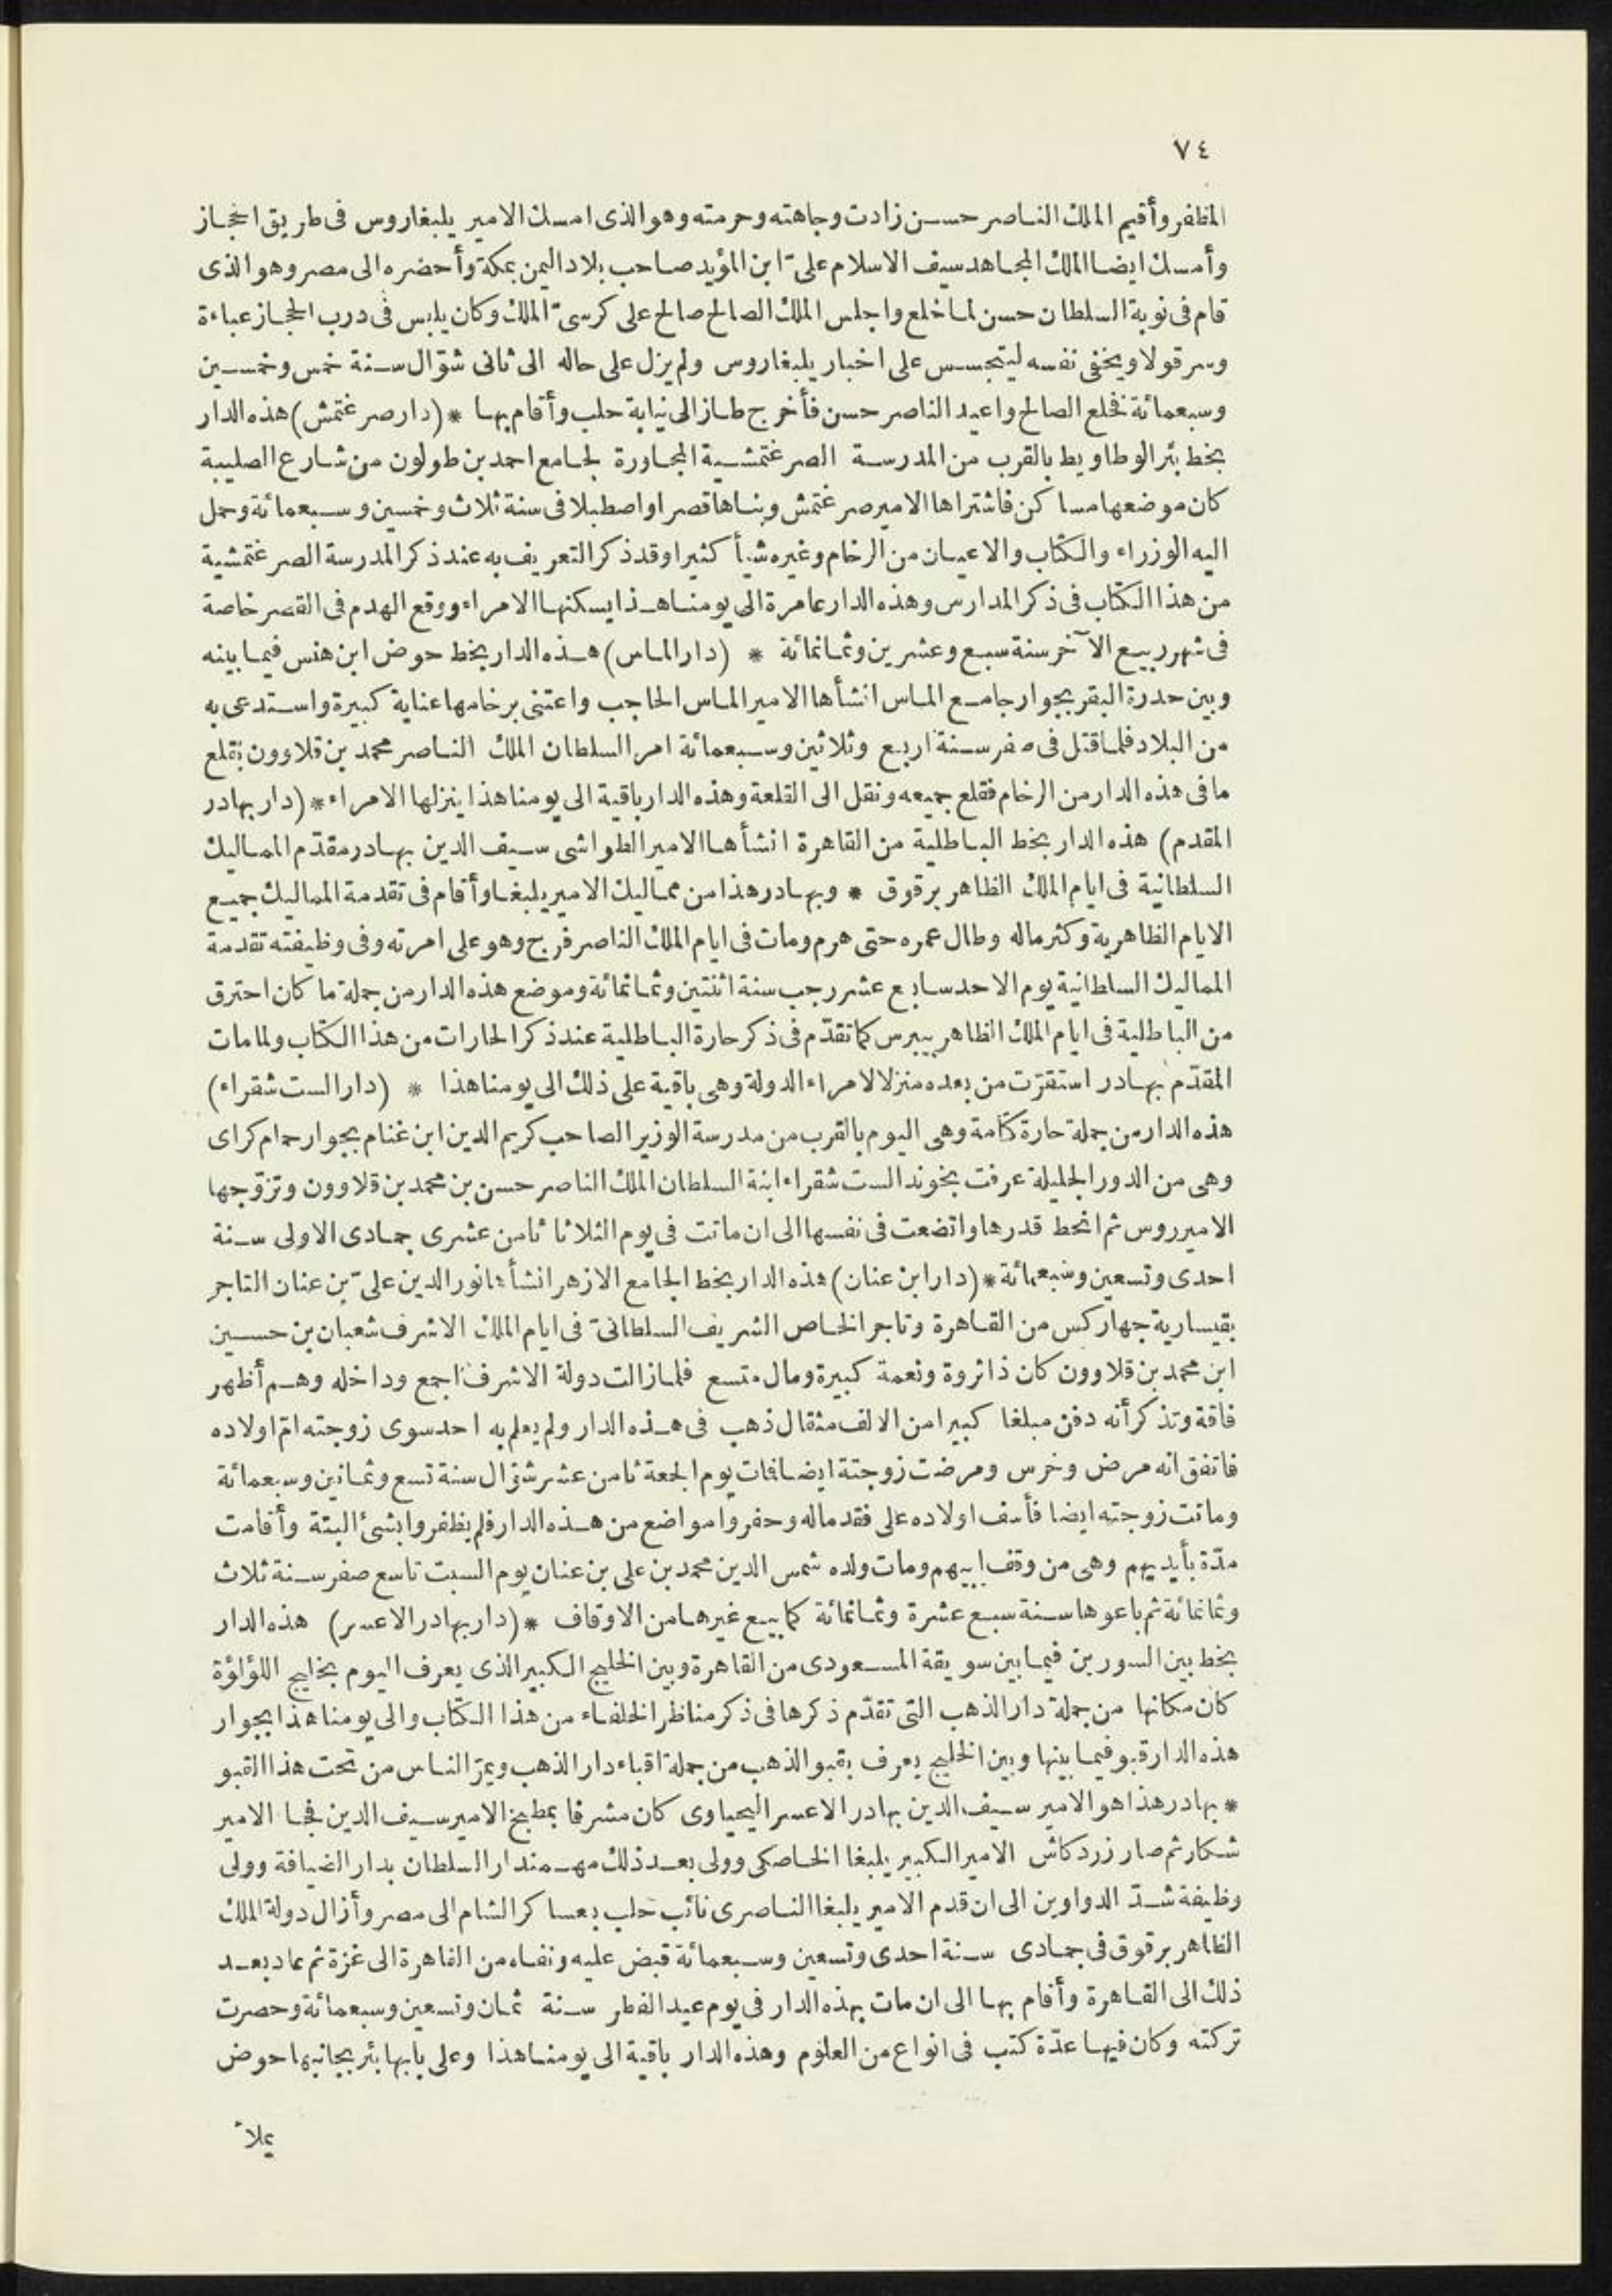 ٧٤
المظفر وأقيم الملك الناصر حسن زادت وجاهته وحرمته وهو الذى امسك الامير يلبغاروس فى طريق الحجاز
وأمسك ايضا الملك المجاهد سيف الاسلام علىّ ابن المؤيد صاحب بلاد اليمن بمكة وأحضره الى مصر وهو الذى
قام فى نوبة السلطان حسن لما خلع واجلس الملك الصالح صالح على كرسىّ الملك وكان يلبس فى درب الحجاز عباءة
وسرقولا ويخفى نفسه ليتجسس على اخبار يلبغاروس ولم يزل على حاله الى ثانى شوّال سنة خمس وخمسين
وسبعمائة فخلع الصالح واعيد الناصر حسن فأخرج طاز الى نيابة حلب وأقام بها * (دار صرغتمش) هذه الدار
بخط بئر الوطاويط بالقرب من المدرسة الصرغتمشية المجاورة لجامع احمد بن طولون من شارع الصليبة
كان موضعها مساكن فاشتراها الامير صرغتمش وبناها قصرا واصطبلا فى سنة ثلاث وخمسين وسبعمائة وحمل
اليه الوزراء والكتاب والاعيان من الرخام وغيره شيأ كثيرا وقد ذكر التعريف به عند ذكر المدرسة الصرغتمشية
من هذا الكتاب فى ذكر المدارس وهذه الدار عامرة الى يومنا هذا يسكنها الامراء ووقع الهدم فى القصر خاصة
فى شهر ربيع الآخر سنة سبع وعشرين وثمانمائة * (دار الماس) هذه الدار بخط حوض ابن هنس فيما بينه
وبين حدرة البقر بجوار جامع الماس انشأها الامير الماس الحاجب واعتنى برخامها عناية كبيرة واستدعى به
من البلاد فلما قتل فى صفر سنة اربع وثلاثين وسبعمائة امر السلطان الملك الناصر محمد بن قلاوون بقلع
ما فى هذه الدار من الرخام فقلع جميعه ونقل الى القلعة وهذه الدار باقية الى يومنا هذا ينزلها الامراء * (دار بهادر
المقدم) هذه الدار بخط الباطلية من القاهرة انشأها الامير الطواشى سيف الدين بهادر مقدّم المماليك
السلطانية فى ايام الملك الظاهر برقوق * وبهادر هذا من مماليك الامير يلبغا وأقام فى تقدمة المماليك جميع
الايام الظاهرية وكثر ماله وطال عمره حتى هرم ومات فى ايام الملك الناصر فرج وهو على امرته وفى وظيفته تقدمة
المماليك السلطانية يوم الاحد سابع عشر رجب سنة اثنتين وثمانمائة وموضع هذه الدار من جملة ما كان احترق
من الباطلية فى ايام الملك الظاهر بيبرس كما تقدّم فى ذكر حارة الباطلية عند ذكر الحارات من هذا الكتاب ولما مات
المقدّم بهادر استقرّت من بعده منزلا لامراء الدولة وهى باقية على ذلك الى يومنا هذا * (دار الست شقراء)
هذه الدار من جملة حارة كتامة وهى اليوم بالقرب من مدرسة الوزير الصاحب كريم الدين ابن غنام بجوار حمام كراى
وهى من الدور الجليلة عرفت بخوند الست شقراء ابنة السلطان الملك الناصر حسن بن محمد بن قلاوون وتزوّجها
الامير روس ثم انحط قدرها واتضعت فى نفسها الى ان ماتت فى يوم الثلاثا ثامن عشرى جمادى الاولى سنة
احدى وتسعين وسبعمائة * (دار ابن عنان) هذه الدار بخط الجامع الازهر انشأها نور الدين علىّ بن عنان التاجر
بقيسارية جهاركس من القاهرة وتاجر الخاص الشريف السلطانىّ فى ايام الملك الاشرف شعبان بن حسين
ابن محمد بن قلاوون كان ذا ثروة ونعمة كبيرة ومال متسع فلما زالت دولة الاشرف اجمع وداخله وهم أظهر
فاقة وتذكر أنه دفن مبلغا كبيرا من الالف مثقال ذهب فى هذه الدار ولم يعلم به احد سوى زوجته امّ اولاده
فاتفق انه مرض وخرس ومرضت زوجتة ايضا فمات يوم الجمعة ثامن عشر شوّال سنة تسع وثمانين وسبعمائة
وماتت زوجته ايضا فأسف اولاده على فقد ماله وحفروا مواضع من هذه الدار فلم يظفروا بشئ البتة وأقامت
مدّة بأيديهم وهى من وقف ابيهم ومات ولده شمس الدين محمد بن على بن عنان يوم السبت تاسع صفر سنة ثلاث
وثمانمائة ثم باعوها سنة سبع عشرة وثمانمائة كما بيع غيرها من الاوقاف * (دار بهادر الاعسر) هذه الدار
بخط بين السورين فيما بين سويقة المسعودى من القاهرة وبين الخليج الكبير الذى يعرف اليوم بخليج اللؤلؤة
كان مكانها من جملة دار الذهب التى تقدّم ذكرها فى ذكر مناظر الخلفاء من هذا الكتاب والى يومنا هذا بجوار
هذه الدار قبو فيما بينها وبين الخليج يعرف بقبو الذهب من جملة اقباء دار الذهب ويمرّ الناس من تحت هذا القبو
* بهادر هذا هو الامير سيف الدين بهادر الاعسر اليحياوى كان مشرفا بمطبخ الامير سيف الدين فجا الامير
شكار ثم صار زردكاش الامير الكبير يلبغا الخاصكى وولى بعد ذلك مهمندار السلطان بدار الضيافة وولى
وظيفة شدّ الدواوين الى ان قدم الامير يلبغا الناصرى نائب حلب بعساكر الشام الى مصر وأزال دولة الملك
الظاهر برقوق فى جمادى سنة احدى وتسعين وسبعمائة قبض عليه ونفاه من القاهرة الى غزة ثم عاد بعد
ذلك الى القاهرة وأقام بها الى ان مات بهذه الدار فى يوم عيد الفطر سنة ثمان وتسعين وسبعمائة وحصرت
تركته وكان فيها عدّة كتب فى انواع من العلوم وهذه الدار باقية الى يومنا هذا وعلى بابها بئر بجانبها حوض
يملأ